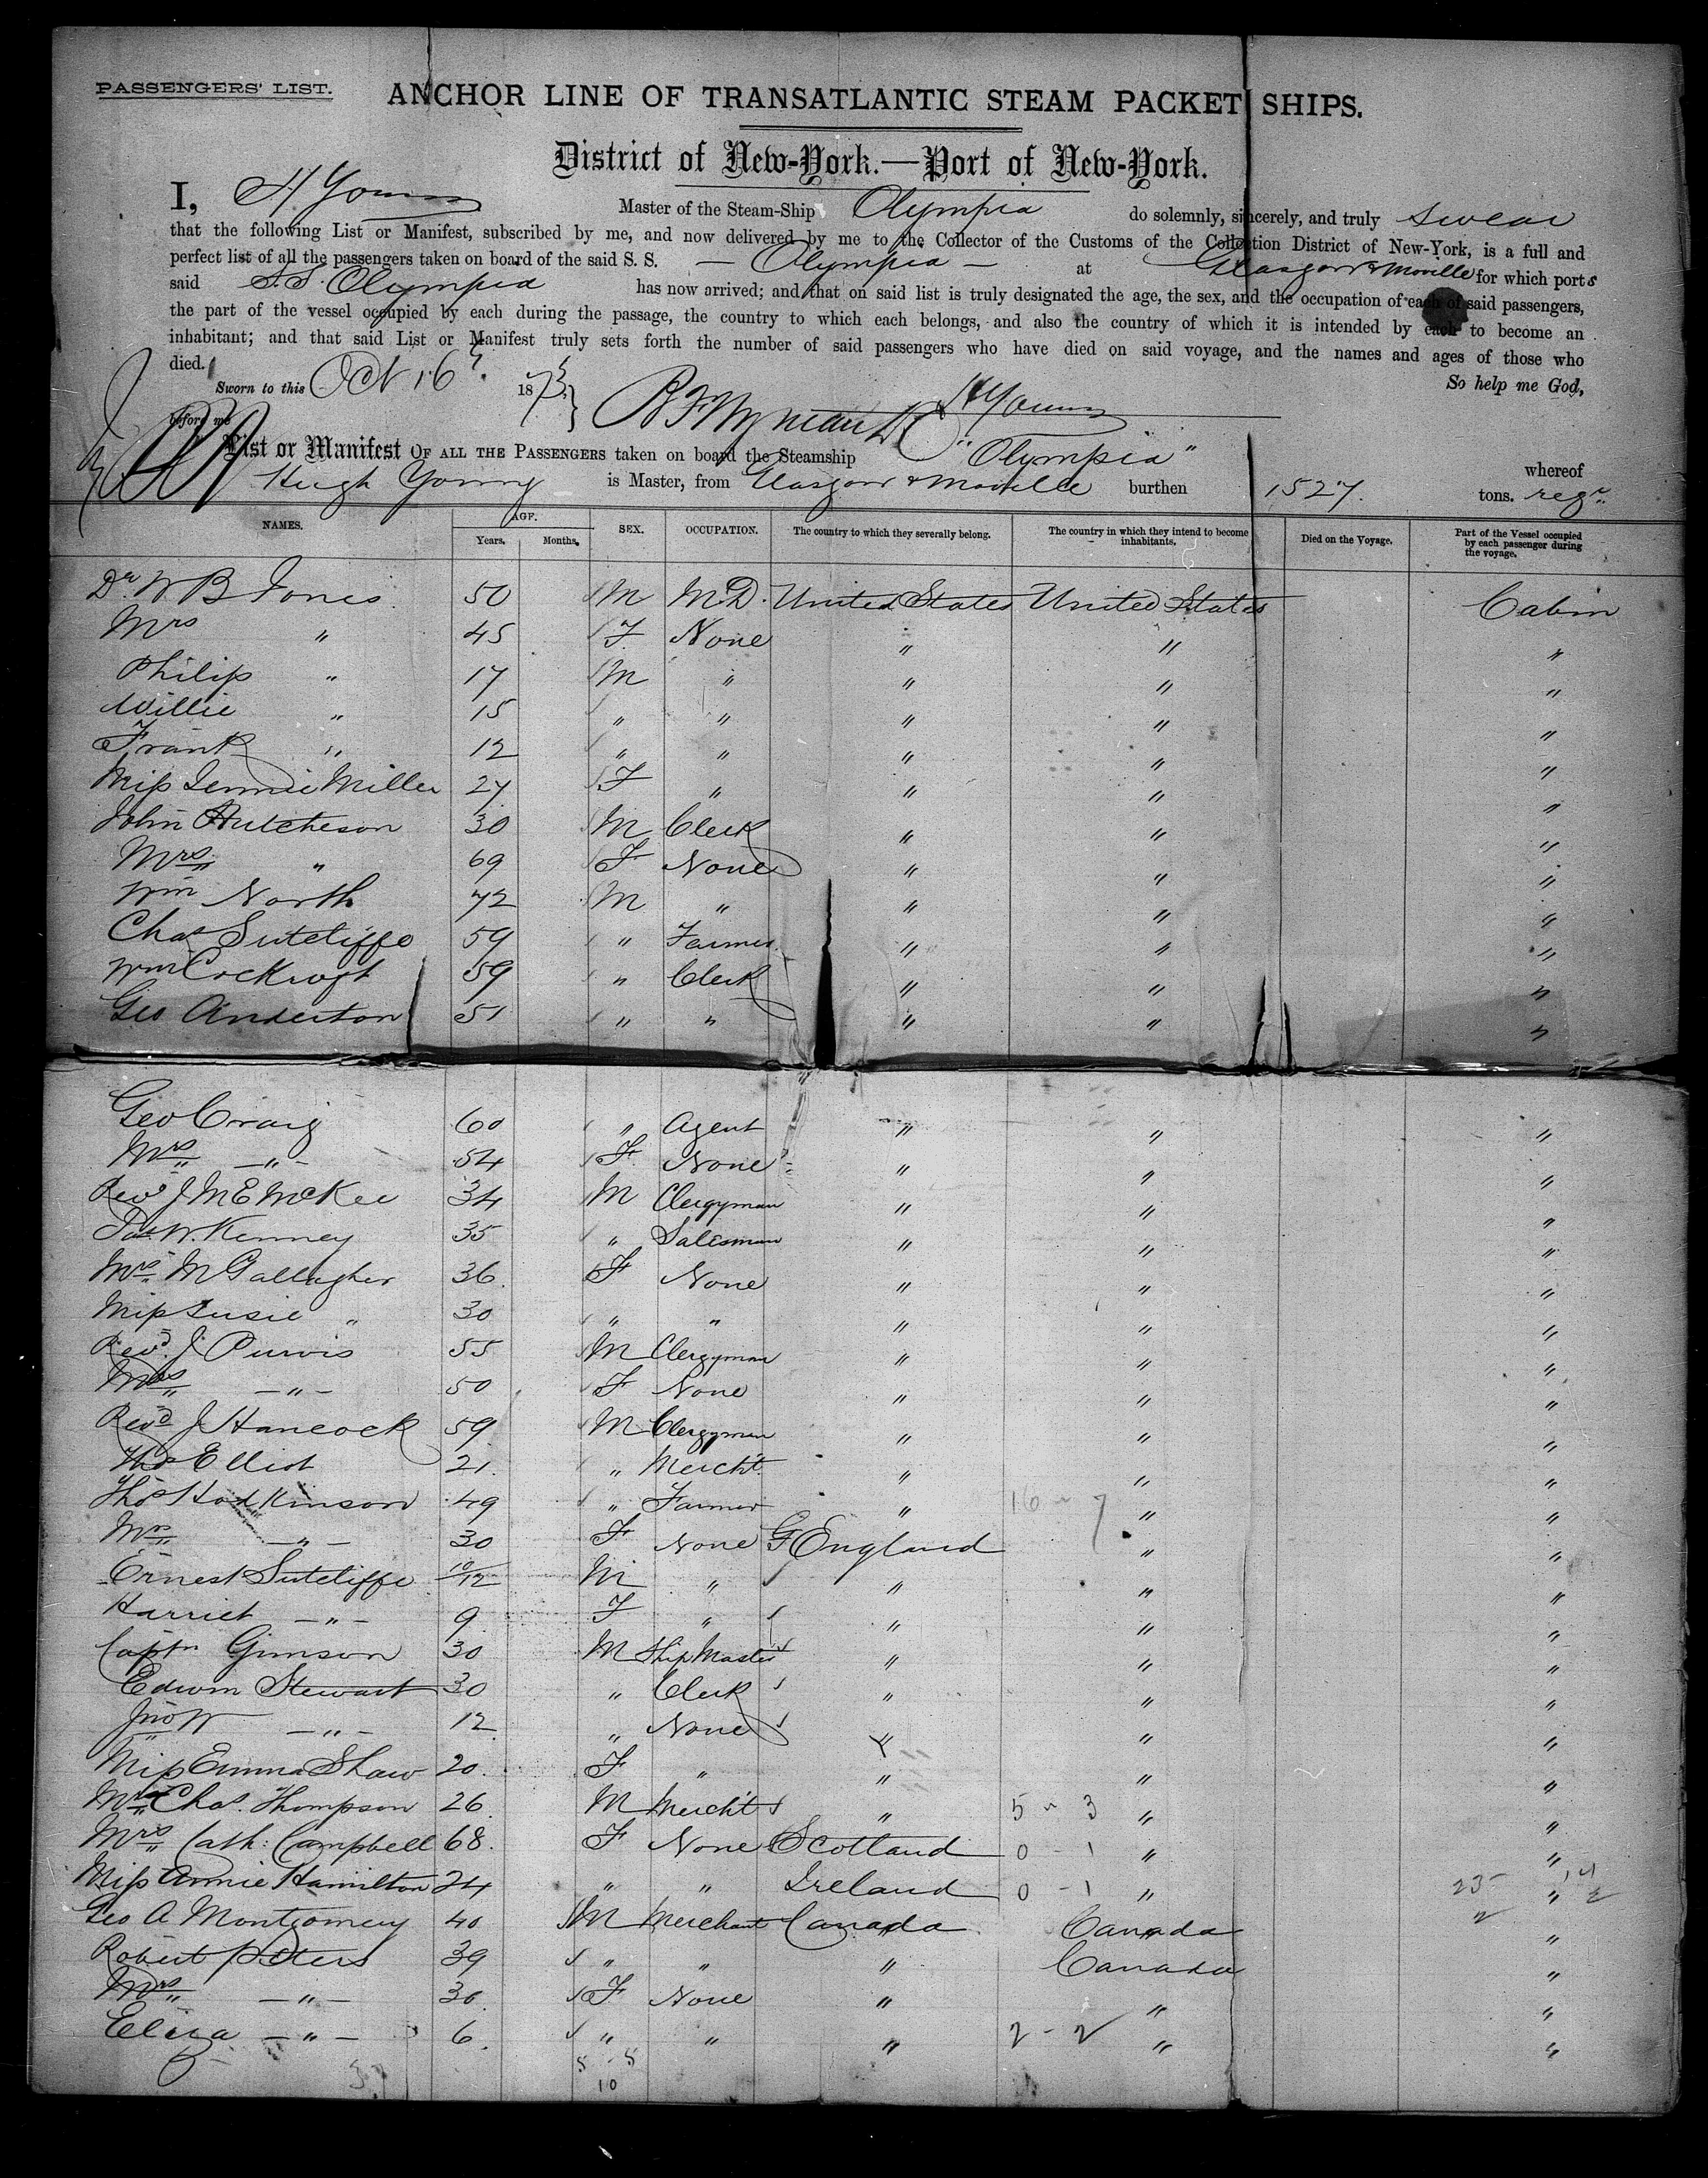 PASSENGERS' LIST.
ANCHOR LINE OF TRANSATLANTIC STEAM PACKET SHIPS.
District of New-York.—Port of New-York.
I, H Young Master of the Steam-Ship Olympia do solemnly, sincerely, and truly swear
that the following List or Manifest, subscribed by me, and now delivered by me to the Collector of the Customs of the Collection District of New-York, is a full and
perfect list of all the passengers taken on board of the said S. S. — Olympia — at Glasgow & Moville for which ports
said S.S. Olympia has now arrived; and that on said list is truly designated the age, the sex, and the occupation of each of said passengers,
the part of the vessel occupied by each during the passage, the country to which each belongs, and also the country of which it is intended by each to become an
inhabitant; and that said List or Manifest truly sets forth the number of said passengers who have died on said voyage, and the names and ages of those who
died. So help me God,
Sworn to this Oct 16 1873 H Young
before me
List or Manifest OF ALL THE PASSENGERS taken on board the Steamship "Olympia" whereof
Hugh Young is Master, from Glasgow & Moville burthen 1527. tons. regr.
NAMES. AGE. SEX. OCCUPATION. The country to which they severally belong. The country in which they intend to become inhabitants. Died on the Voyage. Part of the Vessel occupied by each passenger during the voyage.
Years. Months.
Dr. W B Jones 50 M M.D. United States United States Cabin
Mrs " 45 F None " " "
Philip " 17 M " " " "
Willie " 15 " " " " "
Frank " 12 " " " " "
Miss Jennie Miller 27 F " " " "
John Hutcheson 30 M Clerk " " "
Mrs " 69 F None " " "
Wm North 72 M " " " "
Chas Sutcliffe 59 " Farmer " " "
Wm Cockroft 59 " Clerk " " "
Geo Anderton 51 " " " " "
Geo Craig 60 " Agent " " "
Mrs — " — 54 F None " " "
Revd J McE McKee 34 M Clergyman " " "
Jas W. Kenney 35 " Salesman " " "
Mrs M Gallagher 36 F None " " "
Miss Susie " 30 " " " " "
Revd J Purvis 55 M Clergyman " " "
Mrs — " — 50 F None " " "
Revd J Hancock 59 M Clergyman " " "
Thos Elliot 21 " Mercht. " " "
Thos Hodkinson 49 " Farmer " 16 - 7 " "
Mrs — " — 30 F None England " "
Ernest Sutcliffe 10/12 M " " " "
Harriet — " — 9 F " " " "
Captn Gimson 30 M Ship Master " " "
Edwin Stewart 30 " Clerk " " "
Jno W — " — 12 " None " " "
Miss Emma Shaw 20 F " " " "
Mr Chas. Thompson 26 M Mercht " 5 - 3 " "
Mrs Cath: Campbell 68 F None Scotland 0 - 1 " "
Miss Annie Hamilton 24 " " Ireland 0 - 1 " "
Geo A Montgomery 40 M Merchant Canada Canada "
Robert Peters 39 " " " Canada "
Mrs — " — 30 F None " " "
Eliza — " — 6 " " " 2 - 2 " "
5 - 5
10